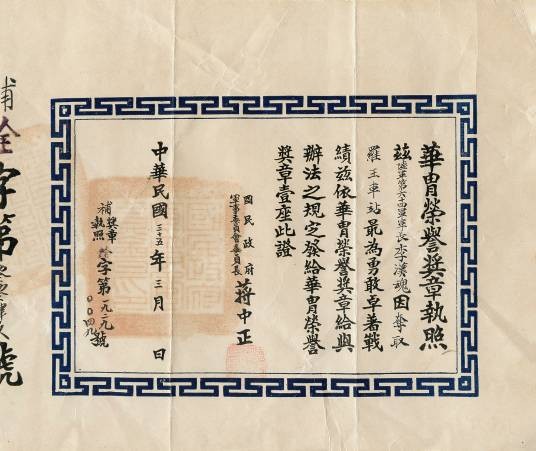 華胄榮譽獎章執照
茲陸軍第六十四軍軍長李漢魂因奪取
羅王車站最為勇敢卓著戰
績茲依華胄榮譽獎章給與
辦法之規定發給華胄榮譽
獎章壹座此證
國民政府
軍事委員會委員長 蔣中正
中華民國三十五年三月 日
獎章 字第一九二九號
補執照 〇〇四九
補
字第 號